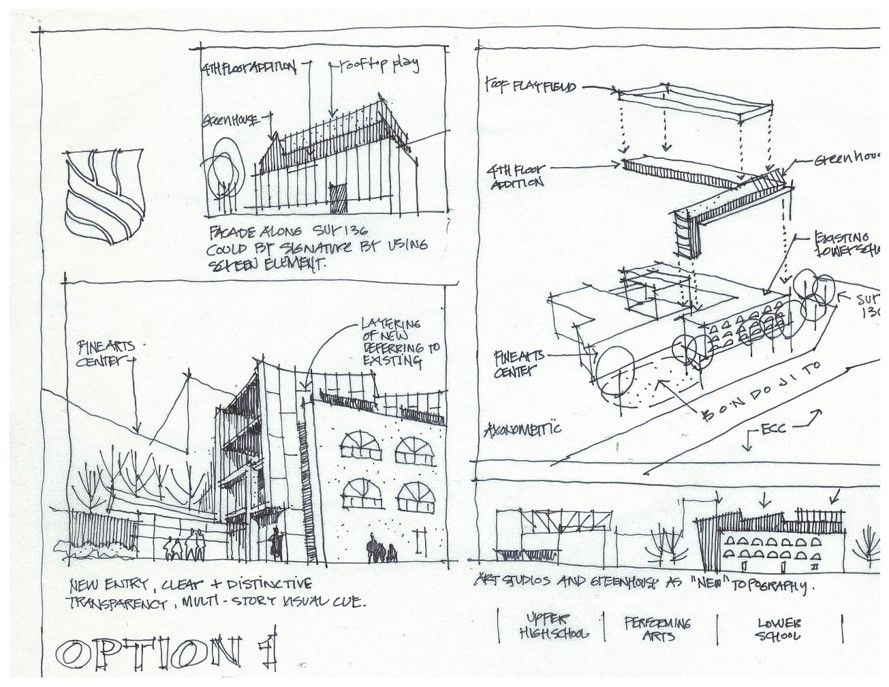 4TH FLOOR ADDITION
rooftop play
Greenhouse
FACADE ALONG SUR 136
COULD BE SIGNATURE BY USING
SCREEN ELEMENT.
FINE ARTS
CENTER
LAYERING
OF NEW
DEFERRING TO
EXISTING
NEW ENTRY, CLEAR + DISTINCTIVE
TRANSPARENCY, MULTI-STORY VISUAL CUE.
OPTION 1
ROOF PLAYFIELD
4TH FLOOR
ADDITION
Greenhous
EXISTING
LOWER SCH
SUR
136
FINE ARTS
CENTER
BONDOJITO
AXONOMETRIC
ECC
ART STUDIOS AND GREENHOUSE AS "NEW" TOPOGRAPHY.
UPPER
HIGH SCHOOL
PERFORMING
ARTS
LOWER
SCHOOL